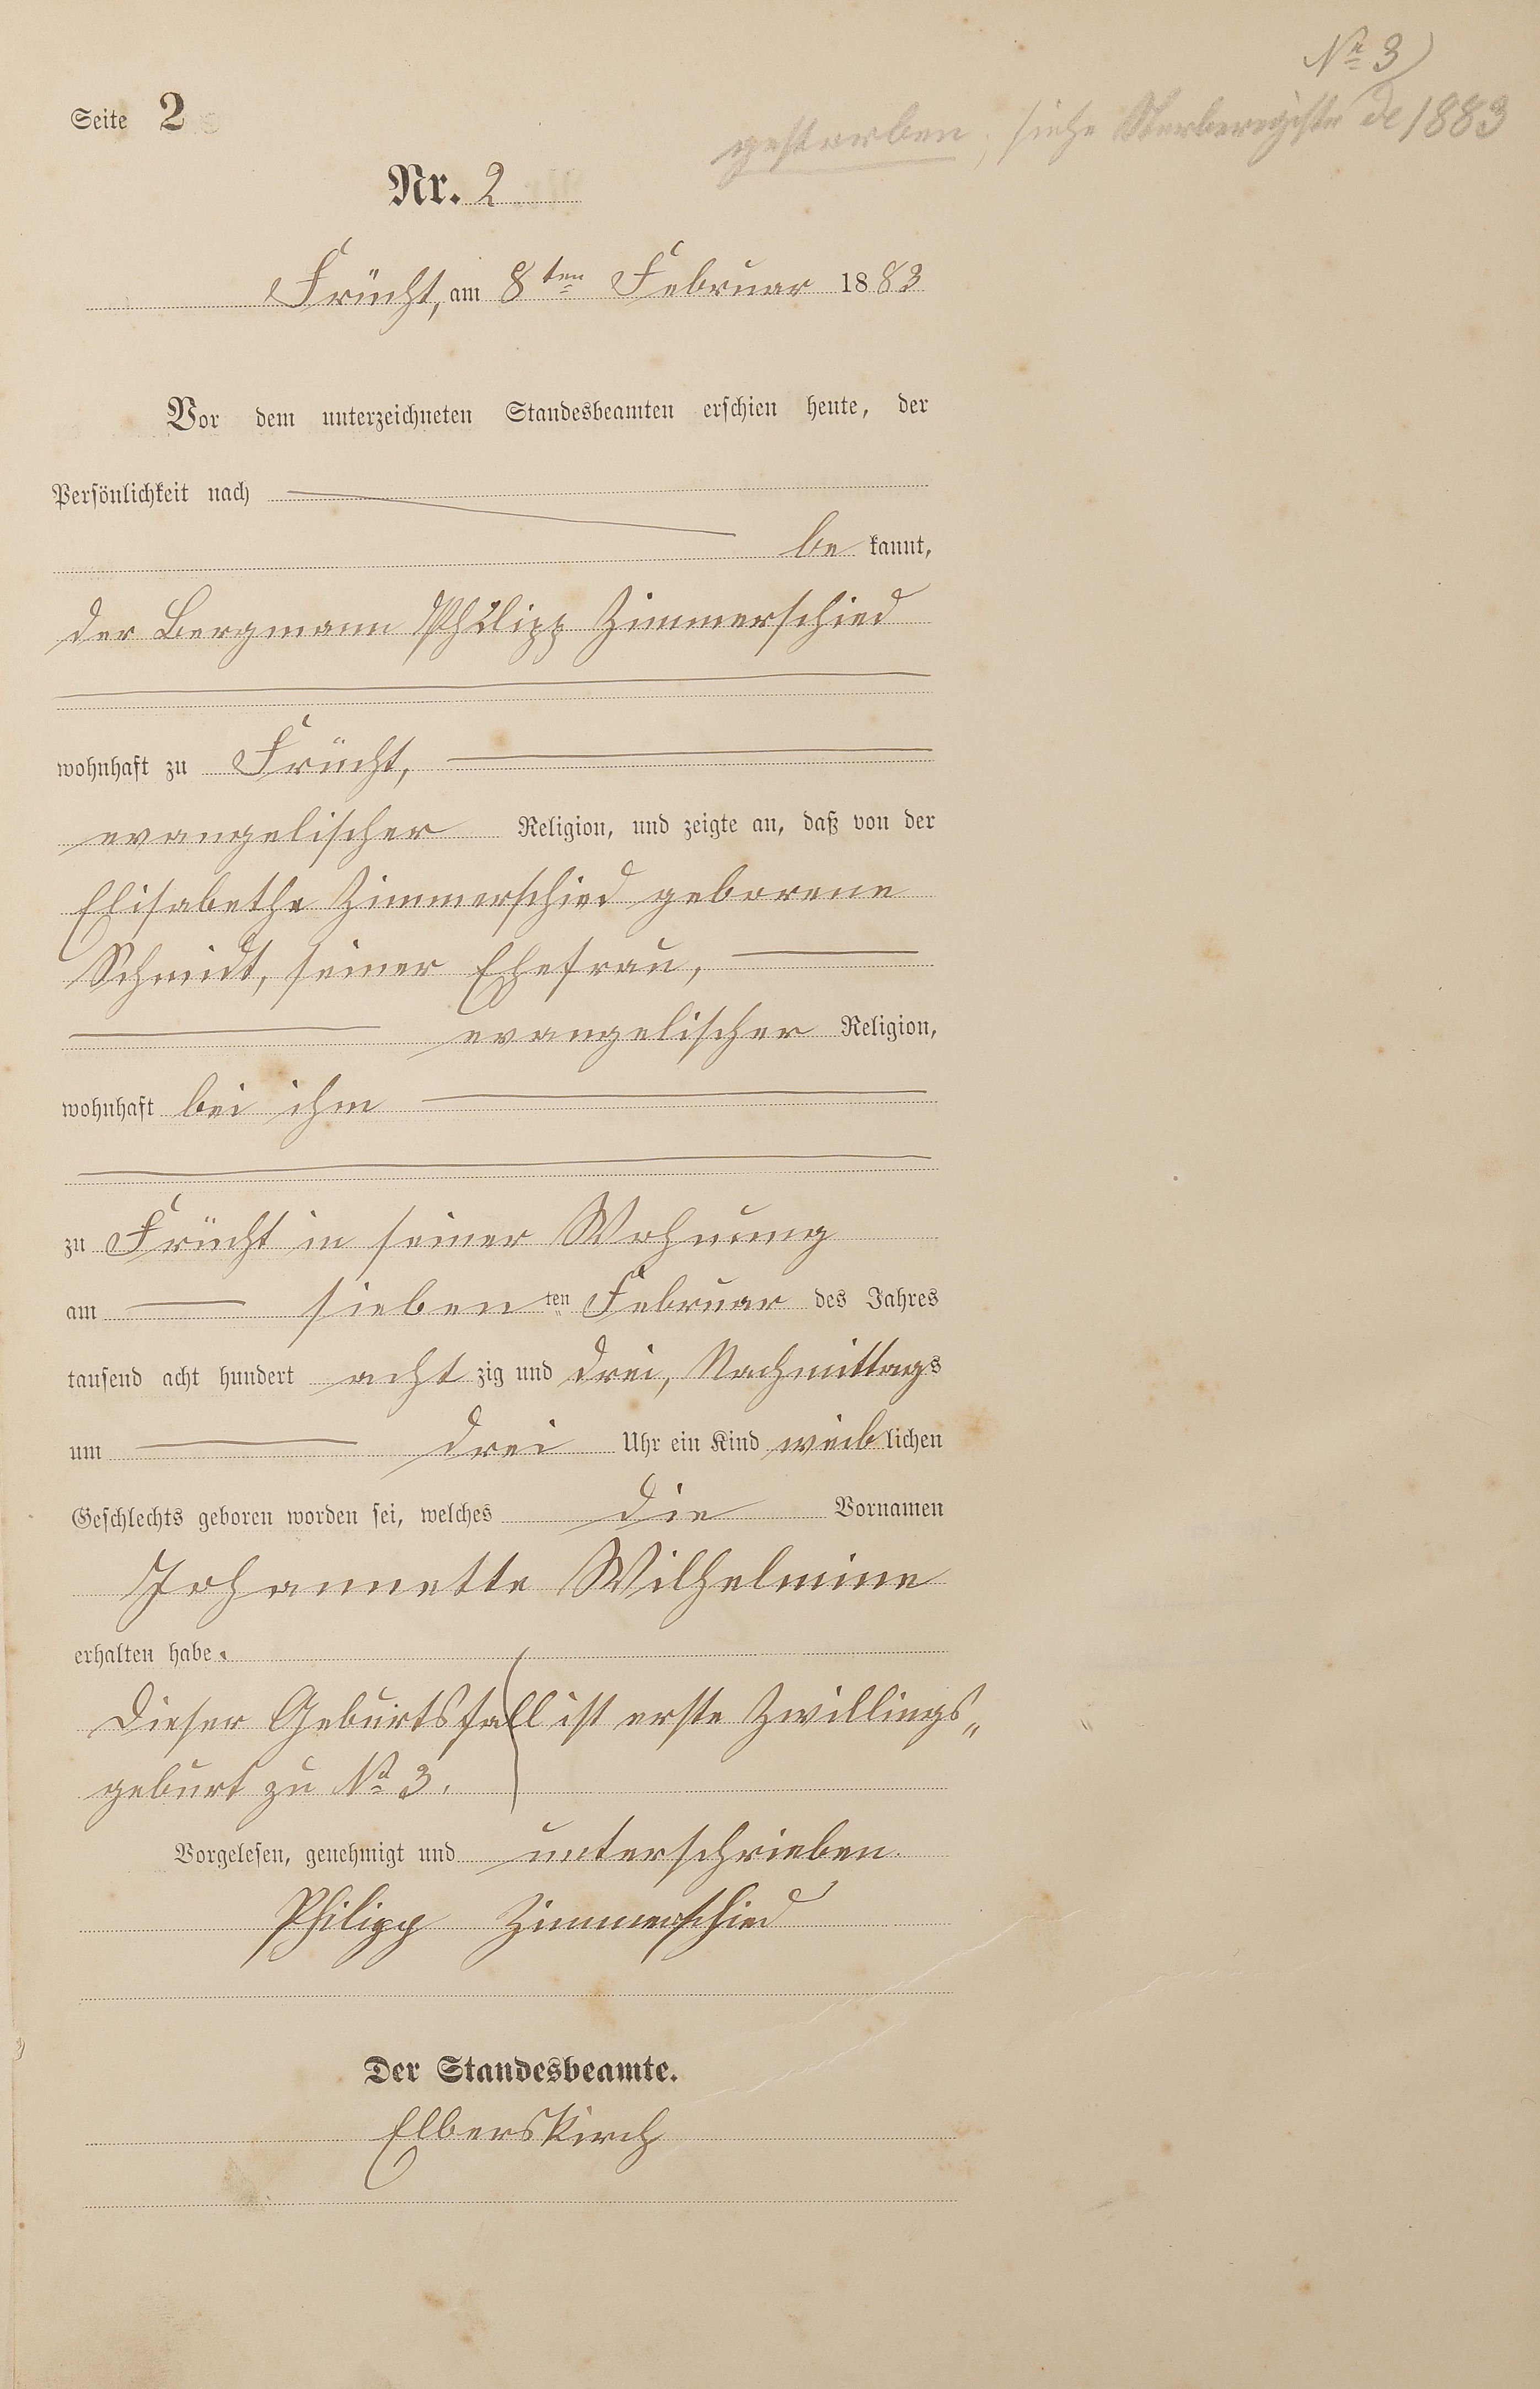 Nº 3
Seite 2
gestorben, siehe Sterberegister de 1883
Nr. 2
Frücht, am 8ten Februar 1883
Vor dem unterzeichneten Standesbeamten erschien heute, der
Persönlichkeit nach
be kannt,
der Bergmann Philipp Zimmerschied
wohnhaft zu Frücht,
evangelischer Religion, und zeigte an, daß von der
Elisabetha Zimmerschied geborene
Schmidt, seiner Ehefrau,
evangelischer Religion,
wohnhaft bei ihm
zu Frücht in seiner Wohnung
am sieben ten Februar des Jahres
tausend acht hundert acht zig und drei, Nachmittags
um drei Uhr ein Kind weiblichen
Geschlechts geboren worden sei, welches die Vornamen
Johannette Wilhelmine
erhalten habe.
Dieser Geburtsfall ist erste Zwillings„
geburt zu Nº 3.
Vorgelesen, genehmigt und unterschrieben.
Philipp Zimmerschied
Der Standesbeamte.
Elberskirch